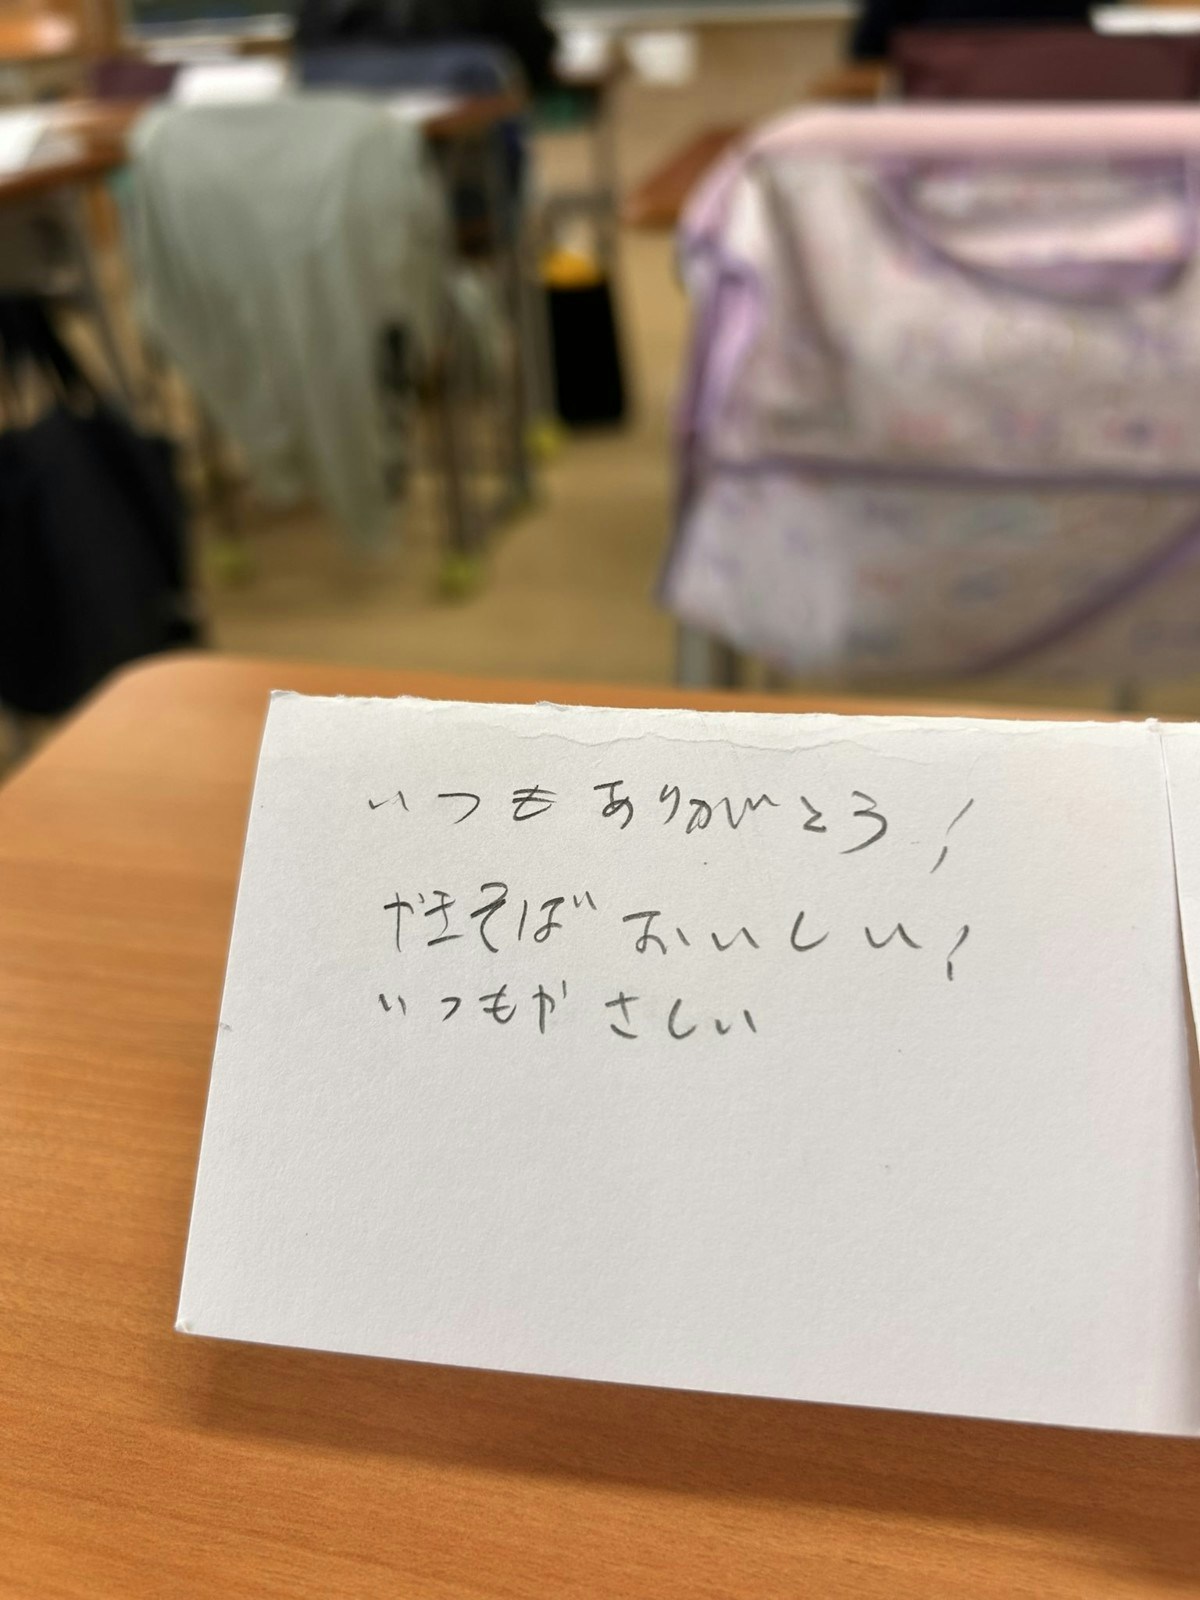 いつも ありがとう!
やきそば おいしい!
いつもやさしい